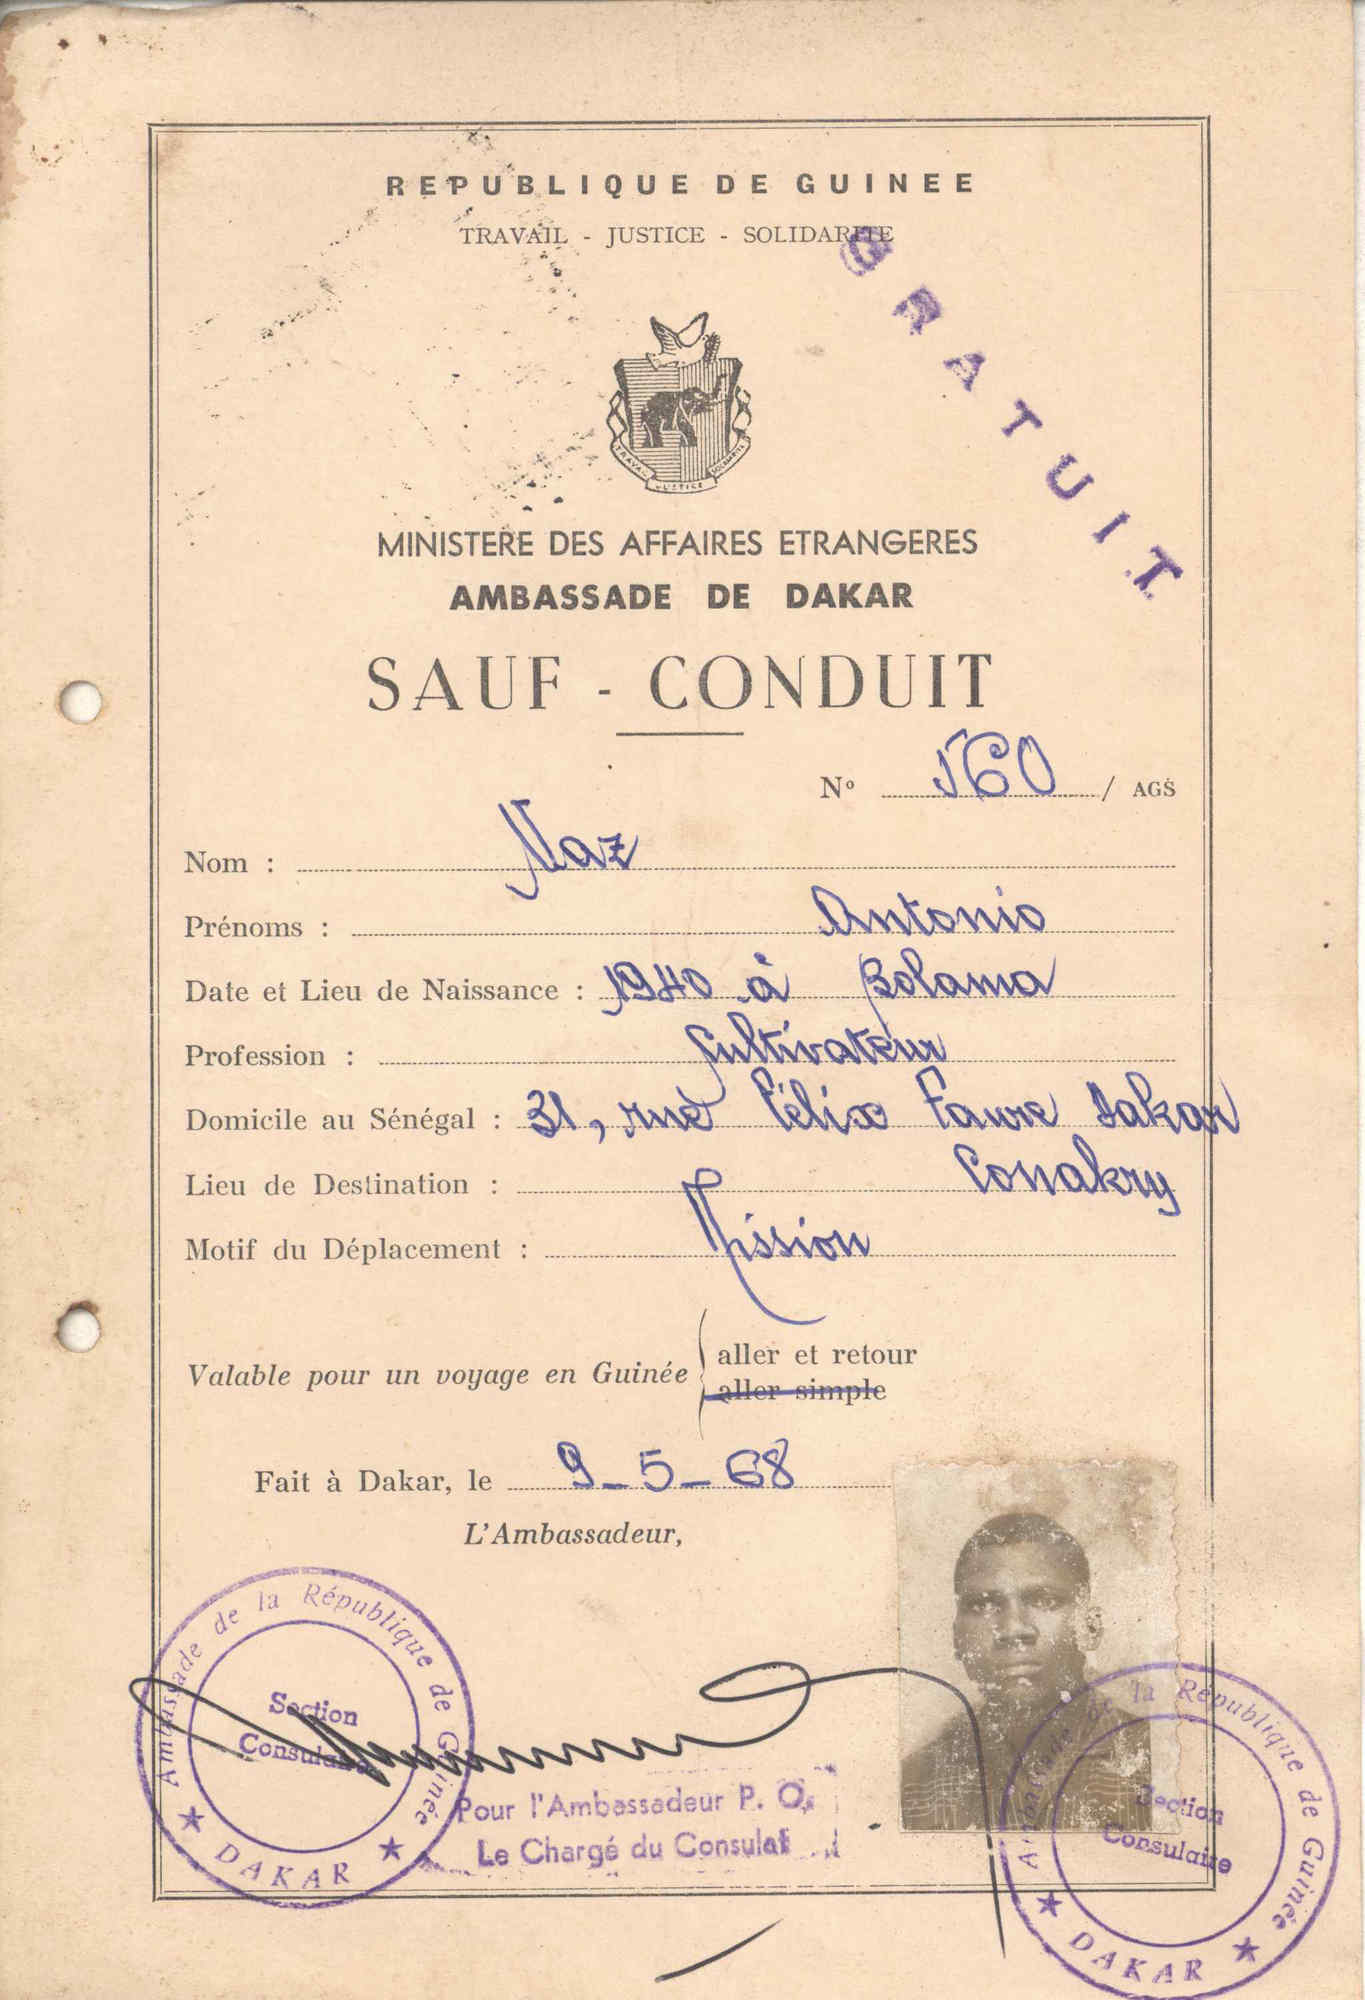 REPUBLIQUE DE GUINEE
TRAVAIL - JUSTICE - SOLIDARITE
GRATUIT
TRAVAIL JUSTICE SOLIDARITE
MINISTERE DES AFFAIRES ETRANGERES
AMBASSADE DE DAKAR
SAUF - CONDUIT
N° 560 / AGS
Nom : Naz
Prénoms : Antonio
Date et Lieu de Naissance : 1940 à Bolama
Profession : Cultivateur
Domicile au Sénégal : 31, rue Félix Faure Dakar
Lieu de Destination : Conakry
Motif du Déplacement : Mission
Valable pour un voyage en Guinée
aller et retour
aller simple
Fait à Dakar, le 9-5-68
L'Ambassadeur,
Ambassade de la République de Guinée
Section
Consulaire
DAKAR
Pour l'Ambassadeur P. O.
Le Chargé du Consulat
Ambassade de la République de Guinée
Section
Consulaire
DAKAR